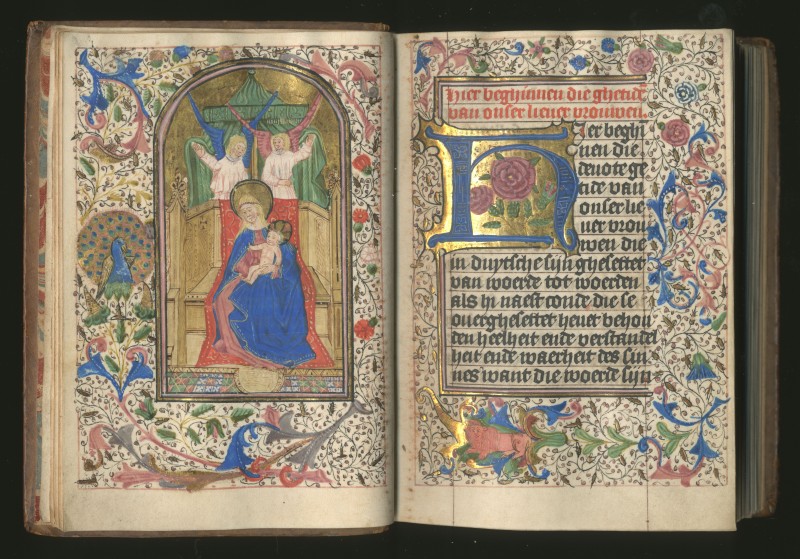 Hier beghinnen die ghetide
van onser liever vrouwen.
Hier beghi
nen die
devote ge
tide van
onser lie
ver vrou
wen die
in duytsche sijn ghesettet
van woerde tot woerden
als hi naest conde die se
overghesettet hevet behou
den heelheit ende verstandel
heit ende waerheit des sin
nes want die woerde sijn